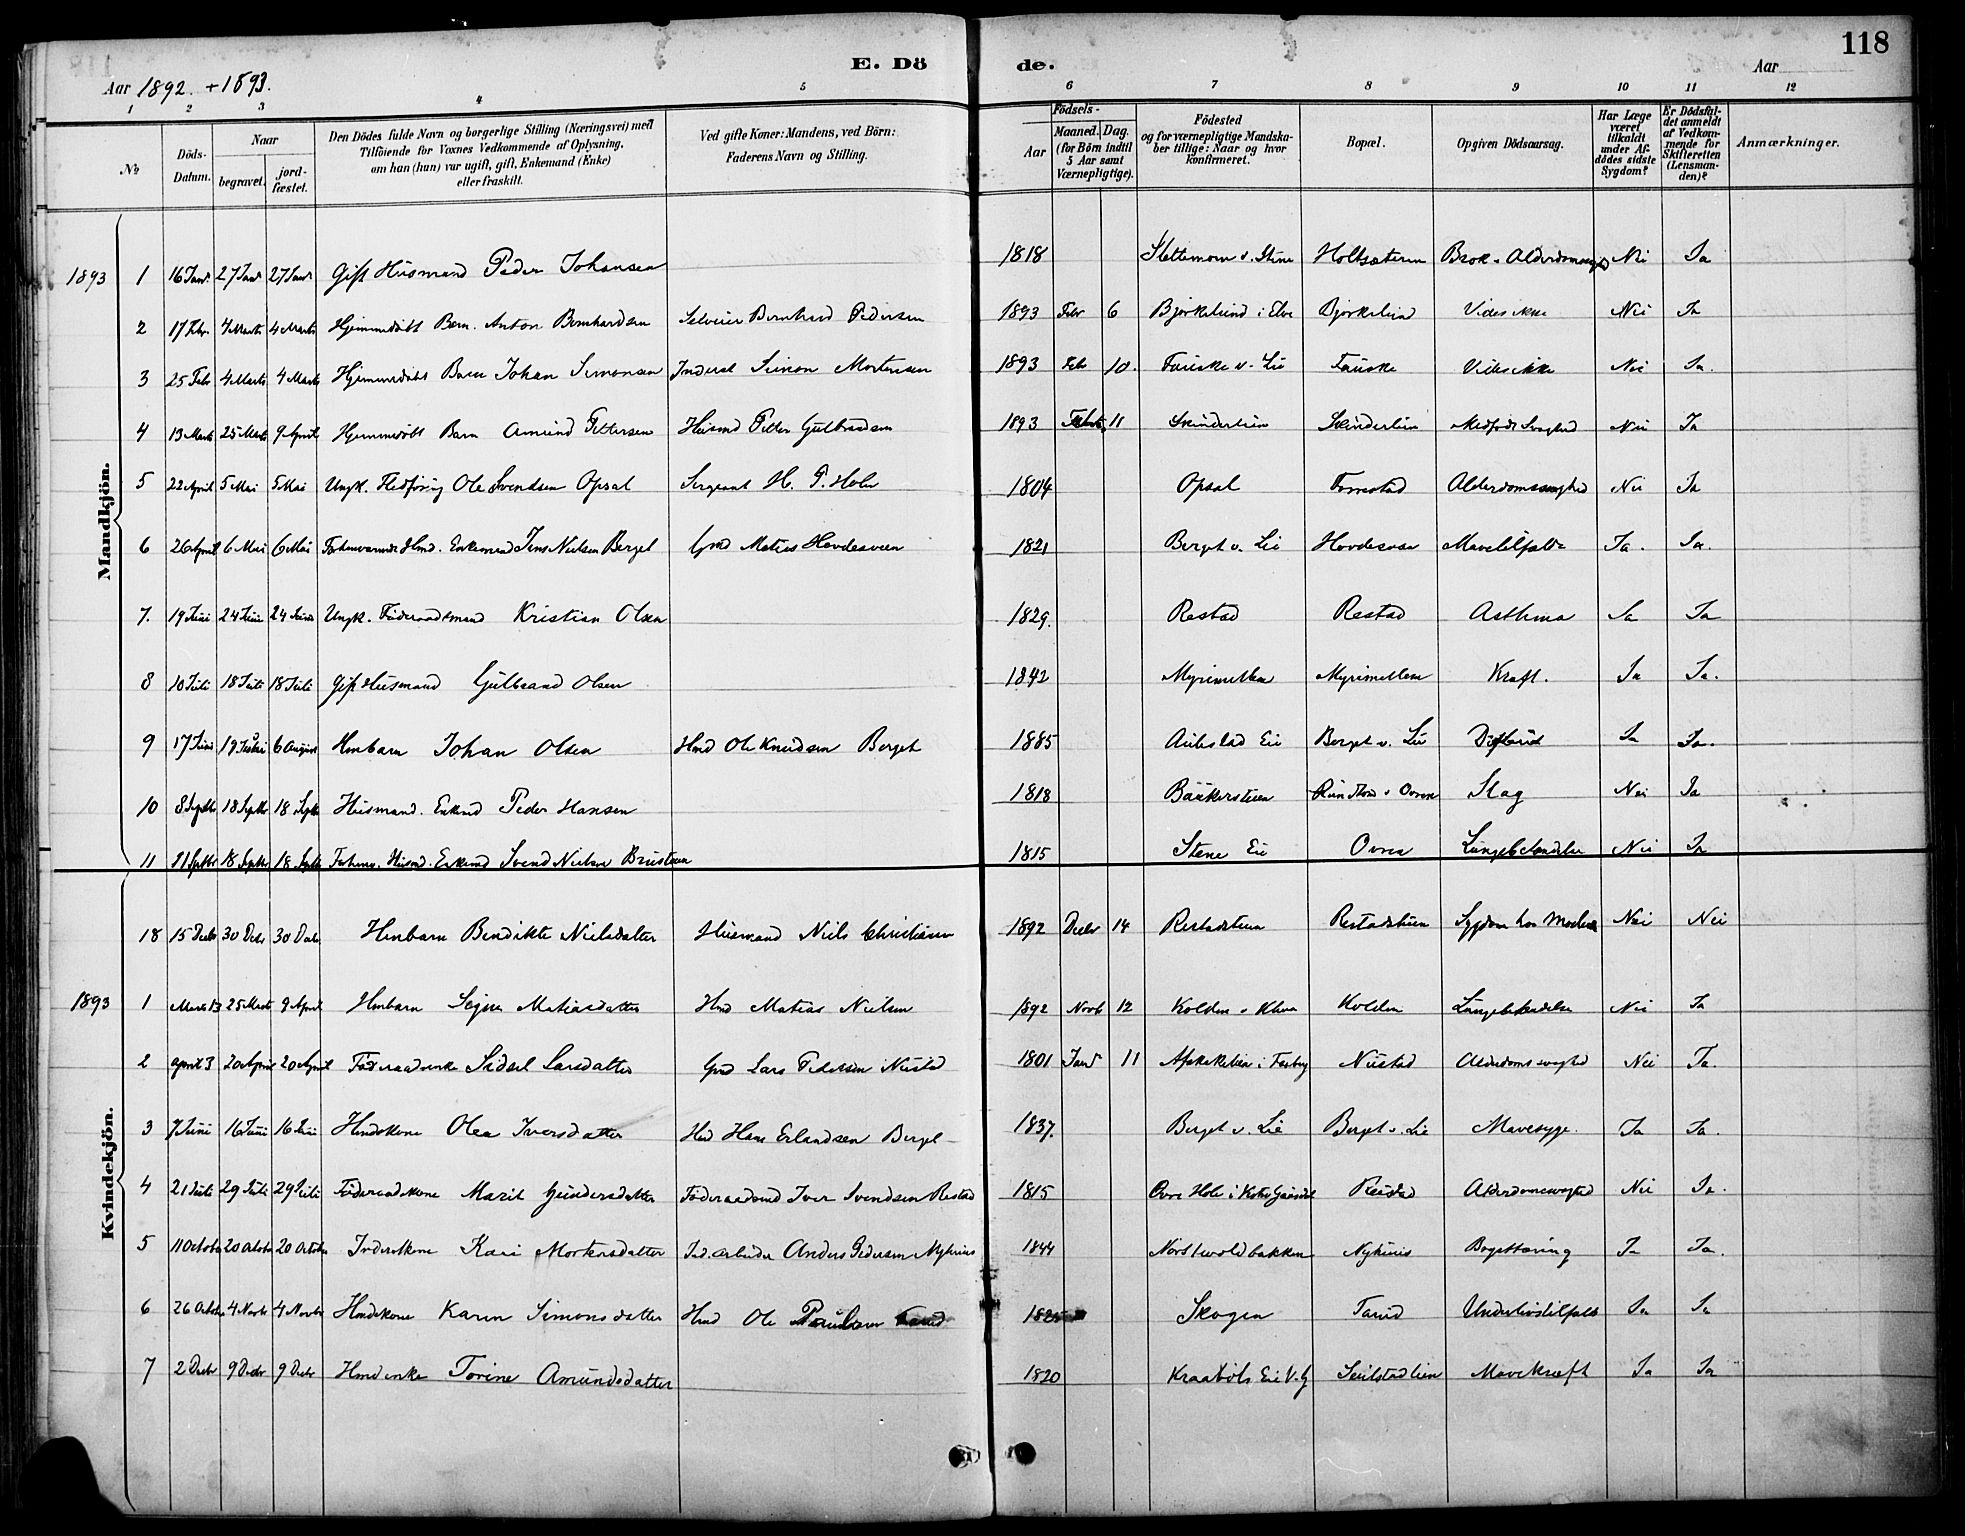 118
E. Dö de.
Aar 1892. + 1893.
Aar
1 2 3 4 5 6 7 8 9 10 11 12
No
Döds-Datum.
Naar
begravet.
jord-fæstet.
Den Dödes fulde Navn og borgerlige Stilling (Næringsvei) med
Tilföiende for Voxnes Vedkommende af Oplysning,
om han (hun) var ugift, gift, Enkemand (Enke)
eller fraskilt.
Ved gifte Koner: Mandens, ved Börn:
Faderens Navn og Stilling.
Födsels-
Aar
Maaned. Dag.
(for Börn indtil
5 Aar samt
Værnepligtige).
Födested
og for værnepligtige Mandska-
ber tillige: Naar og hvor
konfirmeret.
Bopæl.
Opgiven Dödsaarsag.
Har Læge
været
tilkaldt
under Af-
dödes sidste
Sygdom?
Er Dödsfal-
det anmeldt
af Vedkom-
mende for
Skifteretten
(Lensman-
den)?
Anmærkninger.
Mandkjön.
1893 1 16 Janr 27 Janr 27 Janr Gift Husmand Peder Johansen 1818 Holtsæteren Brok + Alderdomssvaghed Nei Ja
2 17 Febr 4 Marts 4 Marts Hjemmedöbt Barn Anton Bernhardsen Selveier Bernhard Pedersen 1893 Febr 6 Bjørkelund i Elve Bjørkelund Vides ikke Nei Ja
3 25 Febr 4 Marts 4 Marts Hjemmedöbt Barn Johan Simonsen Inderst Simon Mortensen 1893 Feb 10. Fauske v. Lie Fauske Vides ikke Nei Ja.
4 13 Marts 25 Marts 9 April Hjemmedöbt Barn Amund Pettersen Husmd Petter Gulbrandsen 1893 11 Skinderlien Skinderlien Medfødt Svaghed Nei Ja
5 22 April 5 Mai 5 Mai Ungk. Ole Svendsen Opsal Sergeant H. P. Holm 1804 Opsal Alderdomssvaghed Nei Ja
6 26 April 6 Mai 6 Mai Forhenværende Hmd. Enkemand Jens Nielsen Berget Gmd Matias Hovdesveen 1821 Berget v. Lie Mavetilfælde Ja. Ja.
7. 19 Juni 24 Juni 24 Juni Ungk. Föderaadsmand Kristian Olsen 1829. Restad Restad Asthma Ja Ja
8 10 Juli 18 Juli 18 Juli Gift Husmand Gulbrand Olsen 1842 Myrimellem Myrimellem Kræft. Ja Ja.
9 17 6 August Hmbarn Johan Olsen Hmd Ole Knudsen Berget 1885 Aulestad Eie Berget v. Lie Ja Ja.
10 8 Septbr 18 Septbr 18 Septbr Husmand. Enkmd Peder Hansen 1818 Slag Nei Ja
11 11 Septbr 18 Septbr 18 Septbr Forhenv. Husmd. Enkemd Svend Nielsen 1815 Stene Eie Ovren Lungebetændelse Nei Ja
Kvindekjön.
18 15 Decbr 30 Decbr 30 Decbr Hmbarn Bendikte Nielsdatter Husmand Niels Christiansen 1892 Decbr 14 Restadstuen Restadstuen Sygdom hos Moderen Nei Nei
1893 1 Marts 13 25 Marts 9 April Hmbarn Signe Matiasdatter Hmd Matias Nielsen 1892 Novb 12 Kolden Lungebetændelse Nei Ja
2 April 3 20 April 20 April Föderaadsenke Sidsel Larsdatter Gmd Lars Pedersen Nustad 1801 Janr 11 Nustad Alderdomssvaghed Nei Ja.
3 7 Juni 16 Juni 16 Juni Hmdskone Olea Iversdatter Hmd Hans Erlandsen Berget 1837. Berget v. Lie Berget v. Lie Mavesyge. Ja Ja.
4 21 Juli 29 Juli 29 Juli Föderaadskone Marit Gundersdatter Föderaadsmd Iver Svendsen Restad 1815 Restad Alderdomssvaghed Nei Ja.
5 11 Octobr 20 Octobr 20 Octobr Inderstkone Kari Mortensdatter Ind. Arbeider Anders Pedersen Nyhuus 1844 Nyhuus Ja Ja.
6 26 Octobr 4 Novbr 4 Novbr Hmdskone Karen Simonsdatter Hmd Ole Paulsen 1825 Skogen Tarud Underlivstilfælde Ja Ja
7 2 Decbr 9 Decbr 9 Decbr Hmdenke Torine Amundsdatter 1820 Kraaböls Eie V. G. Mavekræft Ja Ja